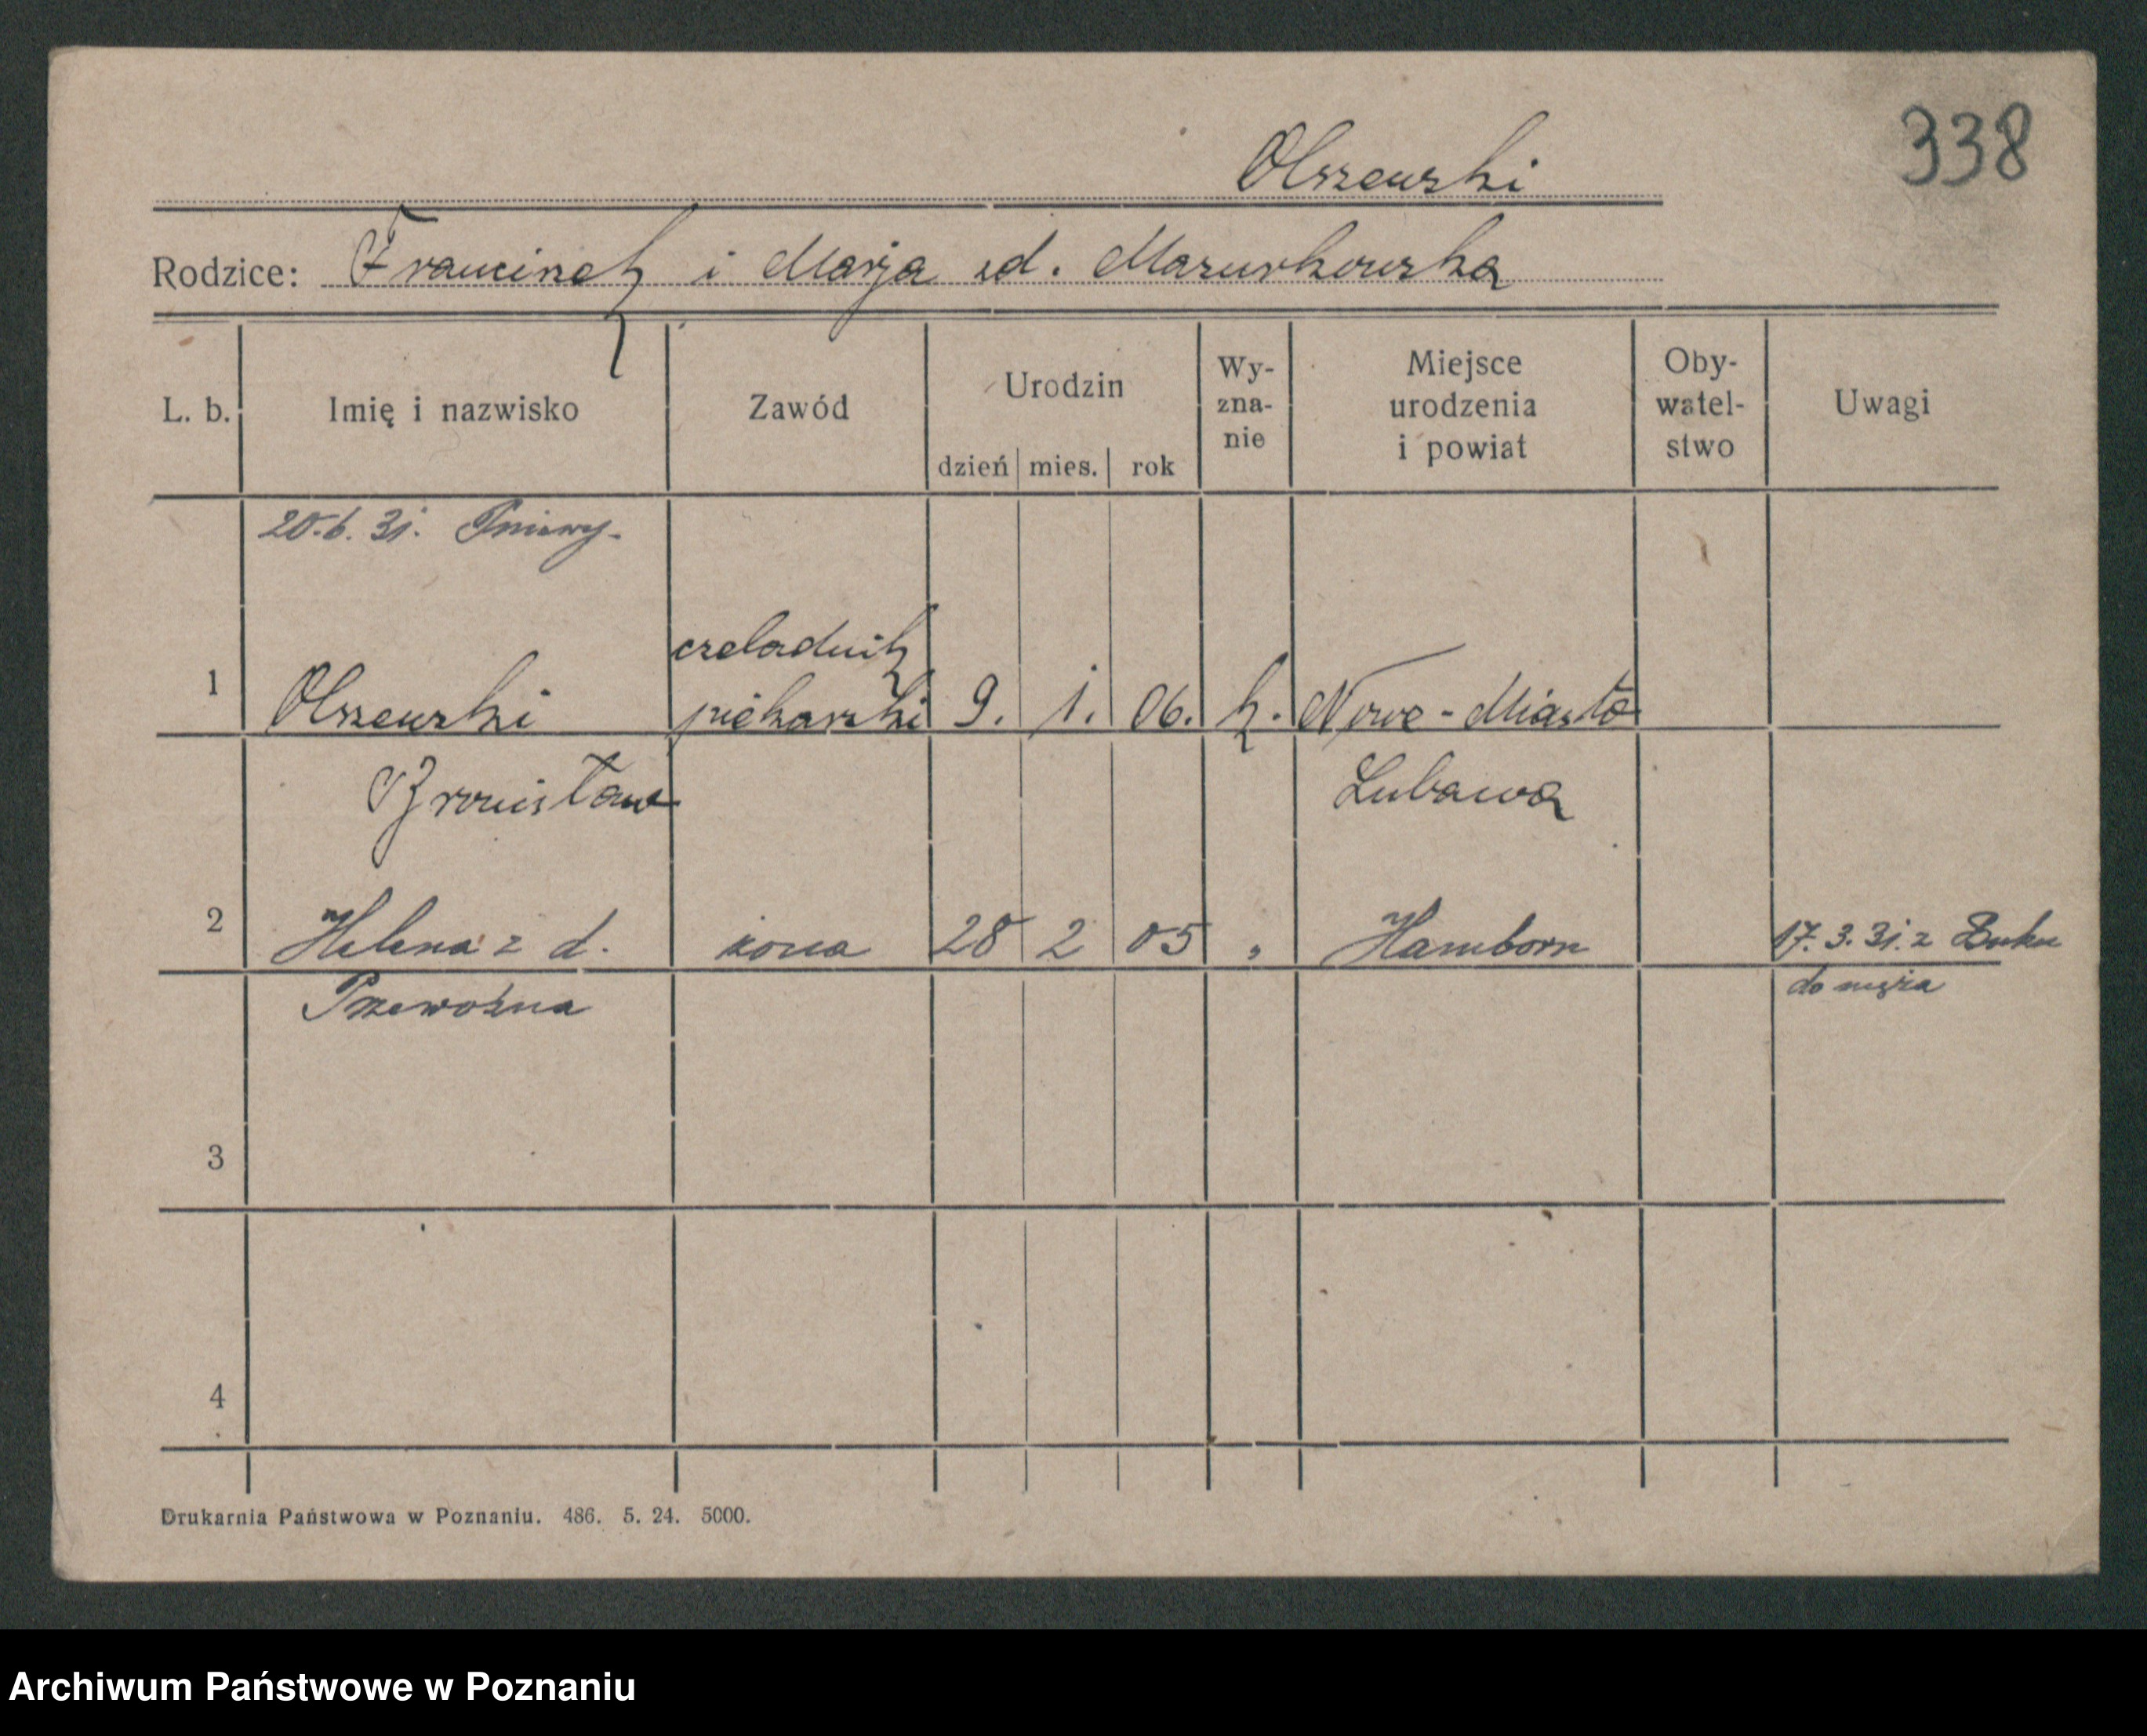 338
Olszewski
Rodzice: Franciszek i Marja zd. Mazurkowska
L. b. Imię i nazwisko Zawód Urodzin dzień mies. rok Wy-zna-nie Miejsce urodzenia i powiat Oby-watel-stwo Uwagi
20.6.31. Pniewy.
czeladnik
1 Olszewski piekarski 9. 1. 06. k. Nowe-Miasto
Bronisław Lubawa
2 Helena z d. żona 28 2 05 " Hamborn 17.3.31. z Buku
Przewoźna do męża
3
4
Drukarnia Państwowa w Poznaniu. 486. 5. 24. 5000.
Archiwum Państwowe w Poznaniu